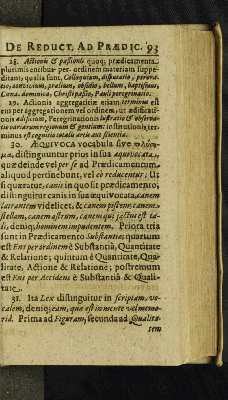 DE REDUCT. AD PRÆDIC. 93
28. Actionis & passionis quoq; prædicamenta
plurimis entibus per ordinem materiam suppe-
ditant, qualia sunt, Colloquium, disputatio, perora-
tio, convivium, prælium, obsidio, bellum, baptismus,
Cœna dominica, Christi passio, Pauli peregrinatio.
29. Actionis aggregatitiæ etiam terminus est
ens per aggregationem vel ordinem, ut ædificati-
onis ædificium, Peregrinationis lustratio & observa-
tio variarum regionum & gentium: institutionis ter-
minus est cognitio totalis artis aut scientiæ.
30. ÆQUIVOCA vocabula sive
distinguuntur prius in sua æquivocata,
quæ deinde vel per se ad Prædicamentum
aliquod pertinebunt, vel eò reducentur; Ut
si quæratur, canis in quo sit prædicamento,
distinguitur canis in sua æquivocata, canem
latrantem videlicet, & canem piscem, canem
stellam, canem astrum, canem qui jactus est ta-
li, deniq; hominem impudentem. Priora tria
sunt in Prædicamento substantiæ: quartum
est Ens per ordinem è Substantiâ, Quantitate
& Relatione; quintum è Quantitate, Qua-
litate, Actione & Relatione; postremum
est Ens per Accidens è Substantiâ & Quali-
tate.
31. Ita Lex distinguitur in scriptam, vo-
calem, deniq; eam, quæ est in mente vel memo-
riâ. Prima ad Figuram, secunda ad Qualita-
tem